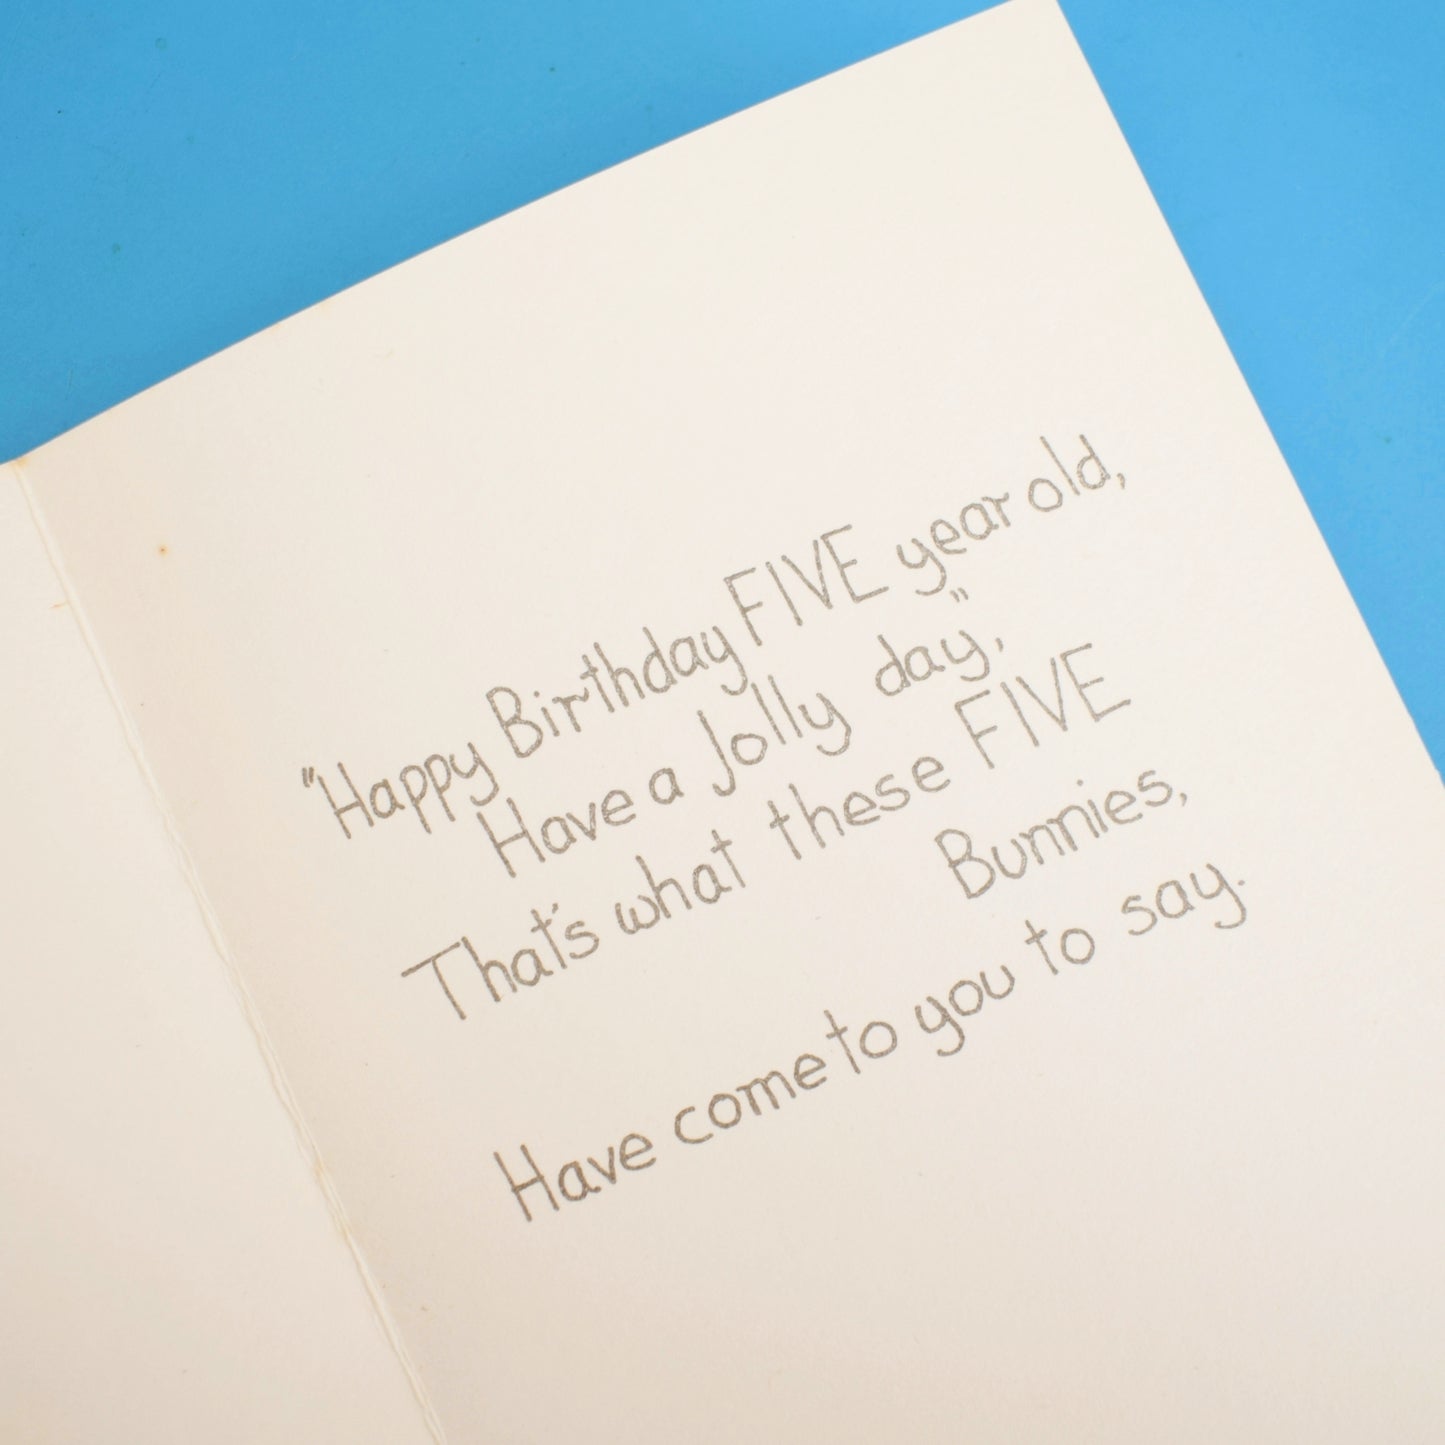 "Happy Birthday FIVE year old,
Have a Jolly day,"
That's what these FIVE
Bunnies,
Have come to you to say.